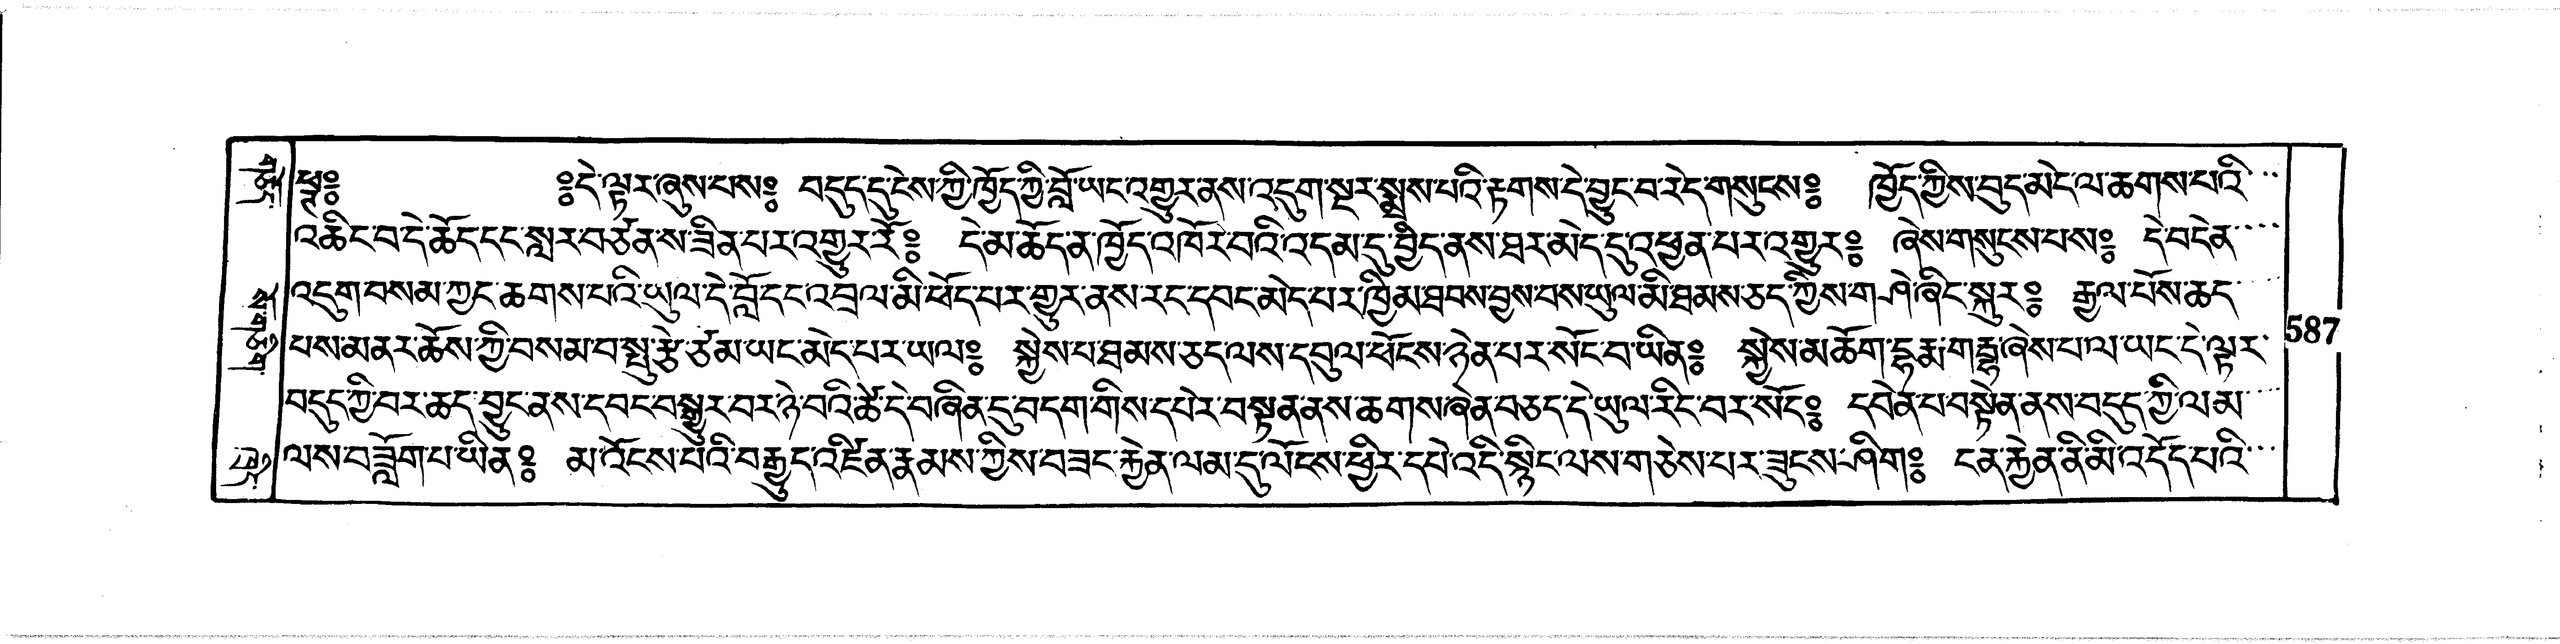 ཕཊ༔ ༔དེ་ལྟར་ཞུས་པས༔ བདུད་དུ་ངེས་ཀྱི་ཁྱོད་ཀྱི་བློ་ཡང་འགྱུར་ནས་འདུག་སྔར་སྨྲས་པའི་རྟགས་དེ་བྱུང་བ་རེད་གསུངས༔ ཁྱོད་ཀྱིས་བུད་མེད་ལ་ཆགས་པའི་
འཆིང་བ་དེ་ཆོད་དང་སླར་བཙན་ས་ཟིན་པར་འགྱུར་རོ༔ དེ་མ་ཆོད་ན་ཁྱོད་འཁོར་བའི་འདམ་དུ་བྱིང་ནས་ཐར་མེད་དུ་འཕྱན་པར་འགྱུར༔ ཞེས་གསུངས་པས༔ དེ་བདེན་
འདུག་བསམ་ཀྱང་ཆགས་པའི་ཡུལ་དེ་བློ་དང་འབྲལ་མི་ཕོད་པར་གྱུར་ནས་རང་དབང་མེད་པར་ཁྱིམ་ཐབས་བྱས་པས་ཡུལ་མི་ཐམས་ཅད་ཀྱིས་ག་ཤེ་ཞིང་སྐུར༔ རྒྱལ་པོས་ཆད་
པས་མནར་ཆོས་ཀྱི་བསམ་བ་སྤུ་རྩེ་ཙམ་ཡང་མེད་པར་ཡལ༔ སྐྱེས་པ་ཐམས་ཅད་ལས་དབུལ་ཕོངས་ཉེན་པར་སོང་བ་ཡིན༔ སྐྱེས་མཆོག་དྷརྨ་གརྦྷ་ཞེས་པ་ལ་ཡང་དེ་ལྟར་
བདུད་ཀྱི་བར་ཆད་བྱུང་ནས་དབང་བསྒྱུར་བར་ཉེ་བའི་ཚེ་དེ་བཞིན་དུ་བདག་གིས་དཔེར་བསྟན་ནས་ཆགས་ཞེན་བཅད་དེ་ཡུལ་རིང་བར་སོང༔ དབེན་པ་བསྟེན་ནས་བདུད་ཀྱི་ལམ་
ལས་བཟློག་པ་ཡིན༔ མ་འོངས་པའི་བརྒྱུད་འཛིན་རྣམས་ཀྱིས་བཟང་རྐྱེན་ལམ་དུ་ལོངས་ཕྱིར་དཔེ་འདི་སྙིང་ལས་གཅེས་པར་ཟུངས་ཤིག༔ ངན་རྐྱེན་ནི་མི་འདོད་པའི་
587